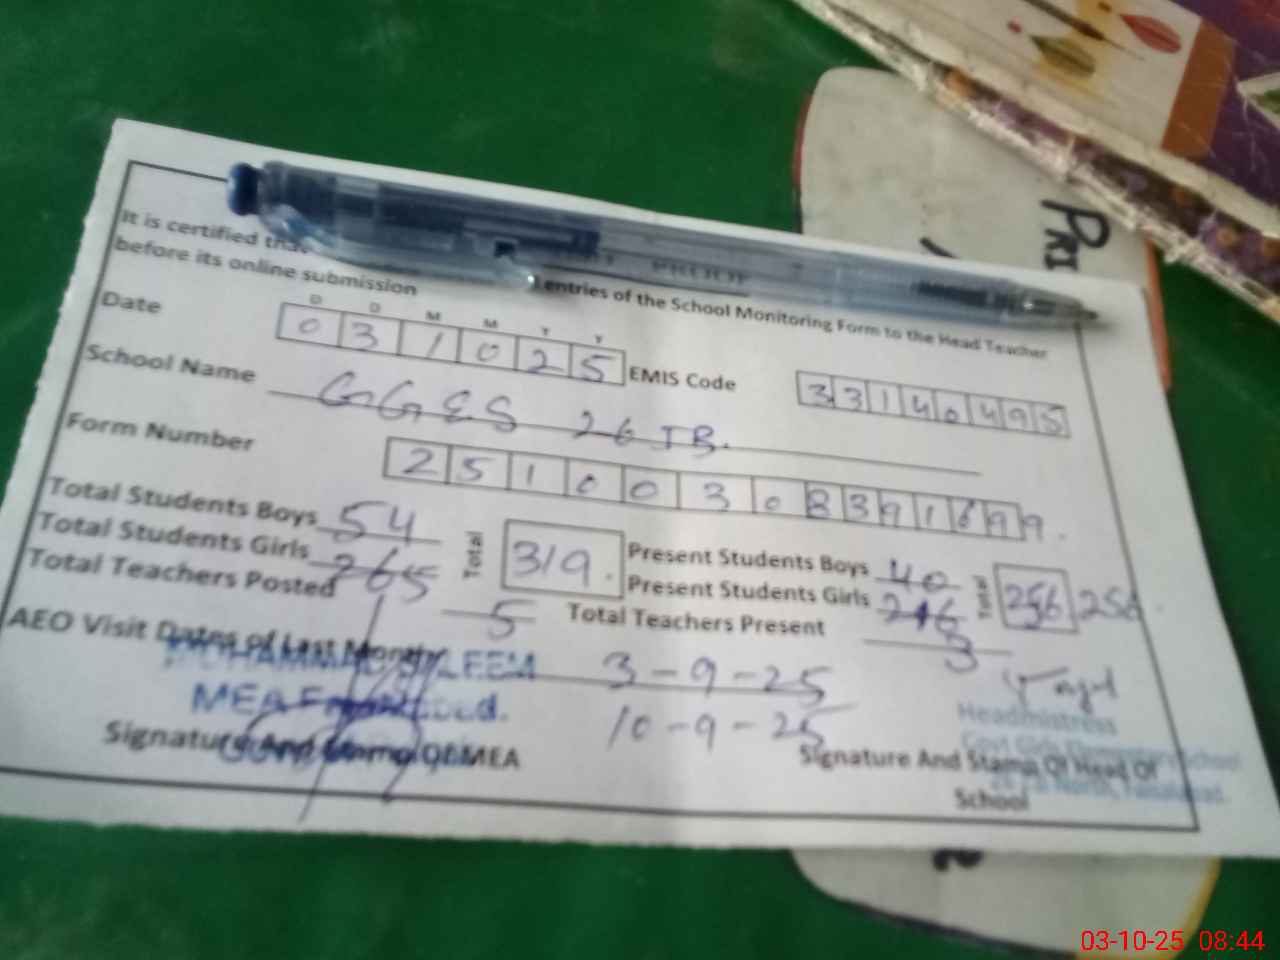 It is certified that
entries of the School Monitoring Form to the Head Teacher
before its online submission
Date
D D M M Y Y
0 3 1 0 2 5
EMIS Code
3 3 1 4 0 4 9 5
School Name
GGES 26 JB.
Form Number
2 5 1 0 0 3 0 8 3 9 1 6 9 9.
Total Students Boys 54
Total Students Girls 265
Total
319.
Present Students Boys 40
Present Students Girls 216
Total
256 256
Total Teachers Posted 5
Total Teachers Present 3
AEO Visit Dates of Last Month
3-9-25
10-9-25
MEA
Signature And Stamp Of MEA
Headmistress
Govt Girls Elementary School
Signature And Stamp Of Head Of
School
PRI
03-10-25 08:44